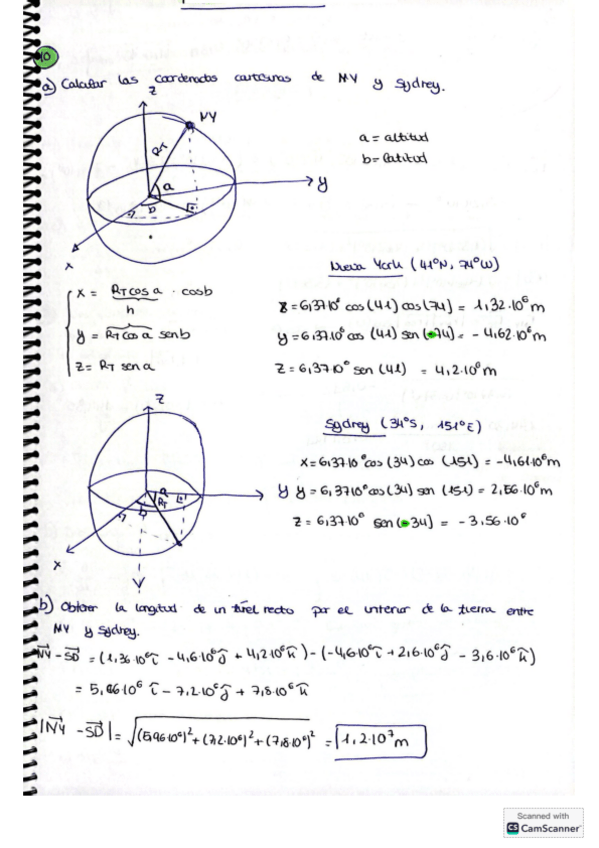 10
a) Calcular las coordenadas cartesianas de NY y Sydney.
z
NY
RT
a
b
y
x
a = altitud
b = latitud
x = RT cos a · cos b
h
y = RT cos a sen b
z = RT sen a
Nueva York (41°N, 74°W)
x = 6,37·10⁶ cos (41) cos (74) = 1,32·10⁶ m
y = 6,37·10⁶ cos (41) sen (-74) = -4,62·10⁶ m
z = 6,37·10⁶ sen (41) = 4,2·10⁶ m
z
a
RT
b
y
x
Sydney (34°S, 151°E)
x = 6,37·10⁶ cos (34) cos (151) = -4,61·10⁶ m
y = 6,37·10⁶ cos (34) sen (151) = 2,56·10⁶ m
z = 6,37·10⁶ sen (-34) = -3,56·10⁶
b) Obtener la longitud de un túnel recto por el interior de la tierra entre
NY y Sydney.
NY - SD = (1,36·10⁶ i - 4,6·10⁶ j + 4,2·10⁶ k) - (-4,6·10⁶ i + 2,6·10⁶ j - 3,6·10⁶ k)
= 5,96·10⁶ i - 7,2·10⁶ j + 7,8·10⁶ k
|NY - SD| = √(5,96·10⁶)² + (7,2·10⁶)² + (7,8·10⁶)² = 1,2·10⁷ m
Scanned with
CS CamScanner